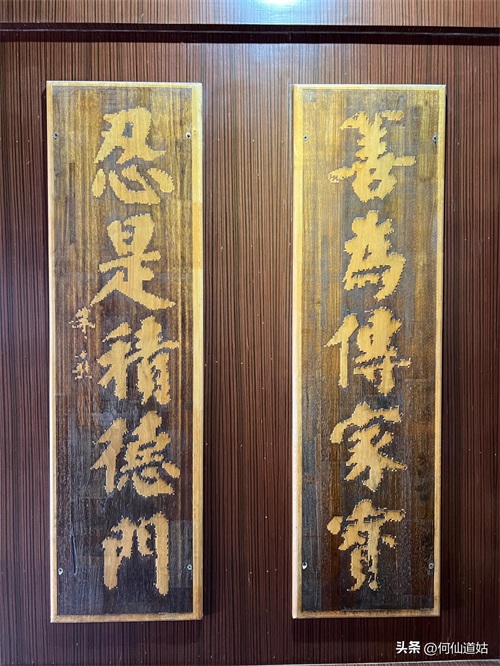 善為傳家寳
忍是積德門
头条 @何仙道姑